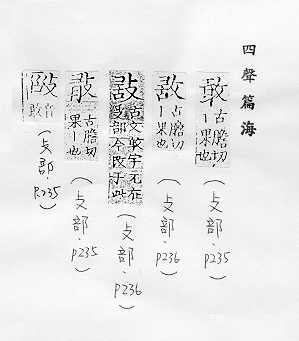 四聲篇海
敢 古膽切
丨果也
(攴部.P235)
古膽切
丨果也
(攴部.P236)
古文敢字元在
殳部今改于此
(攴部.P236)
古膽切
丨果也
(攴部.P235)
音
敢
(攴部.P235)